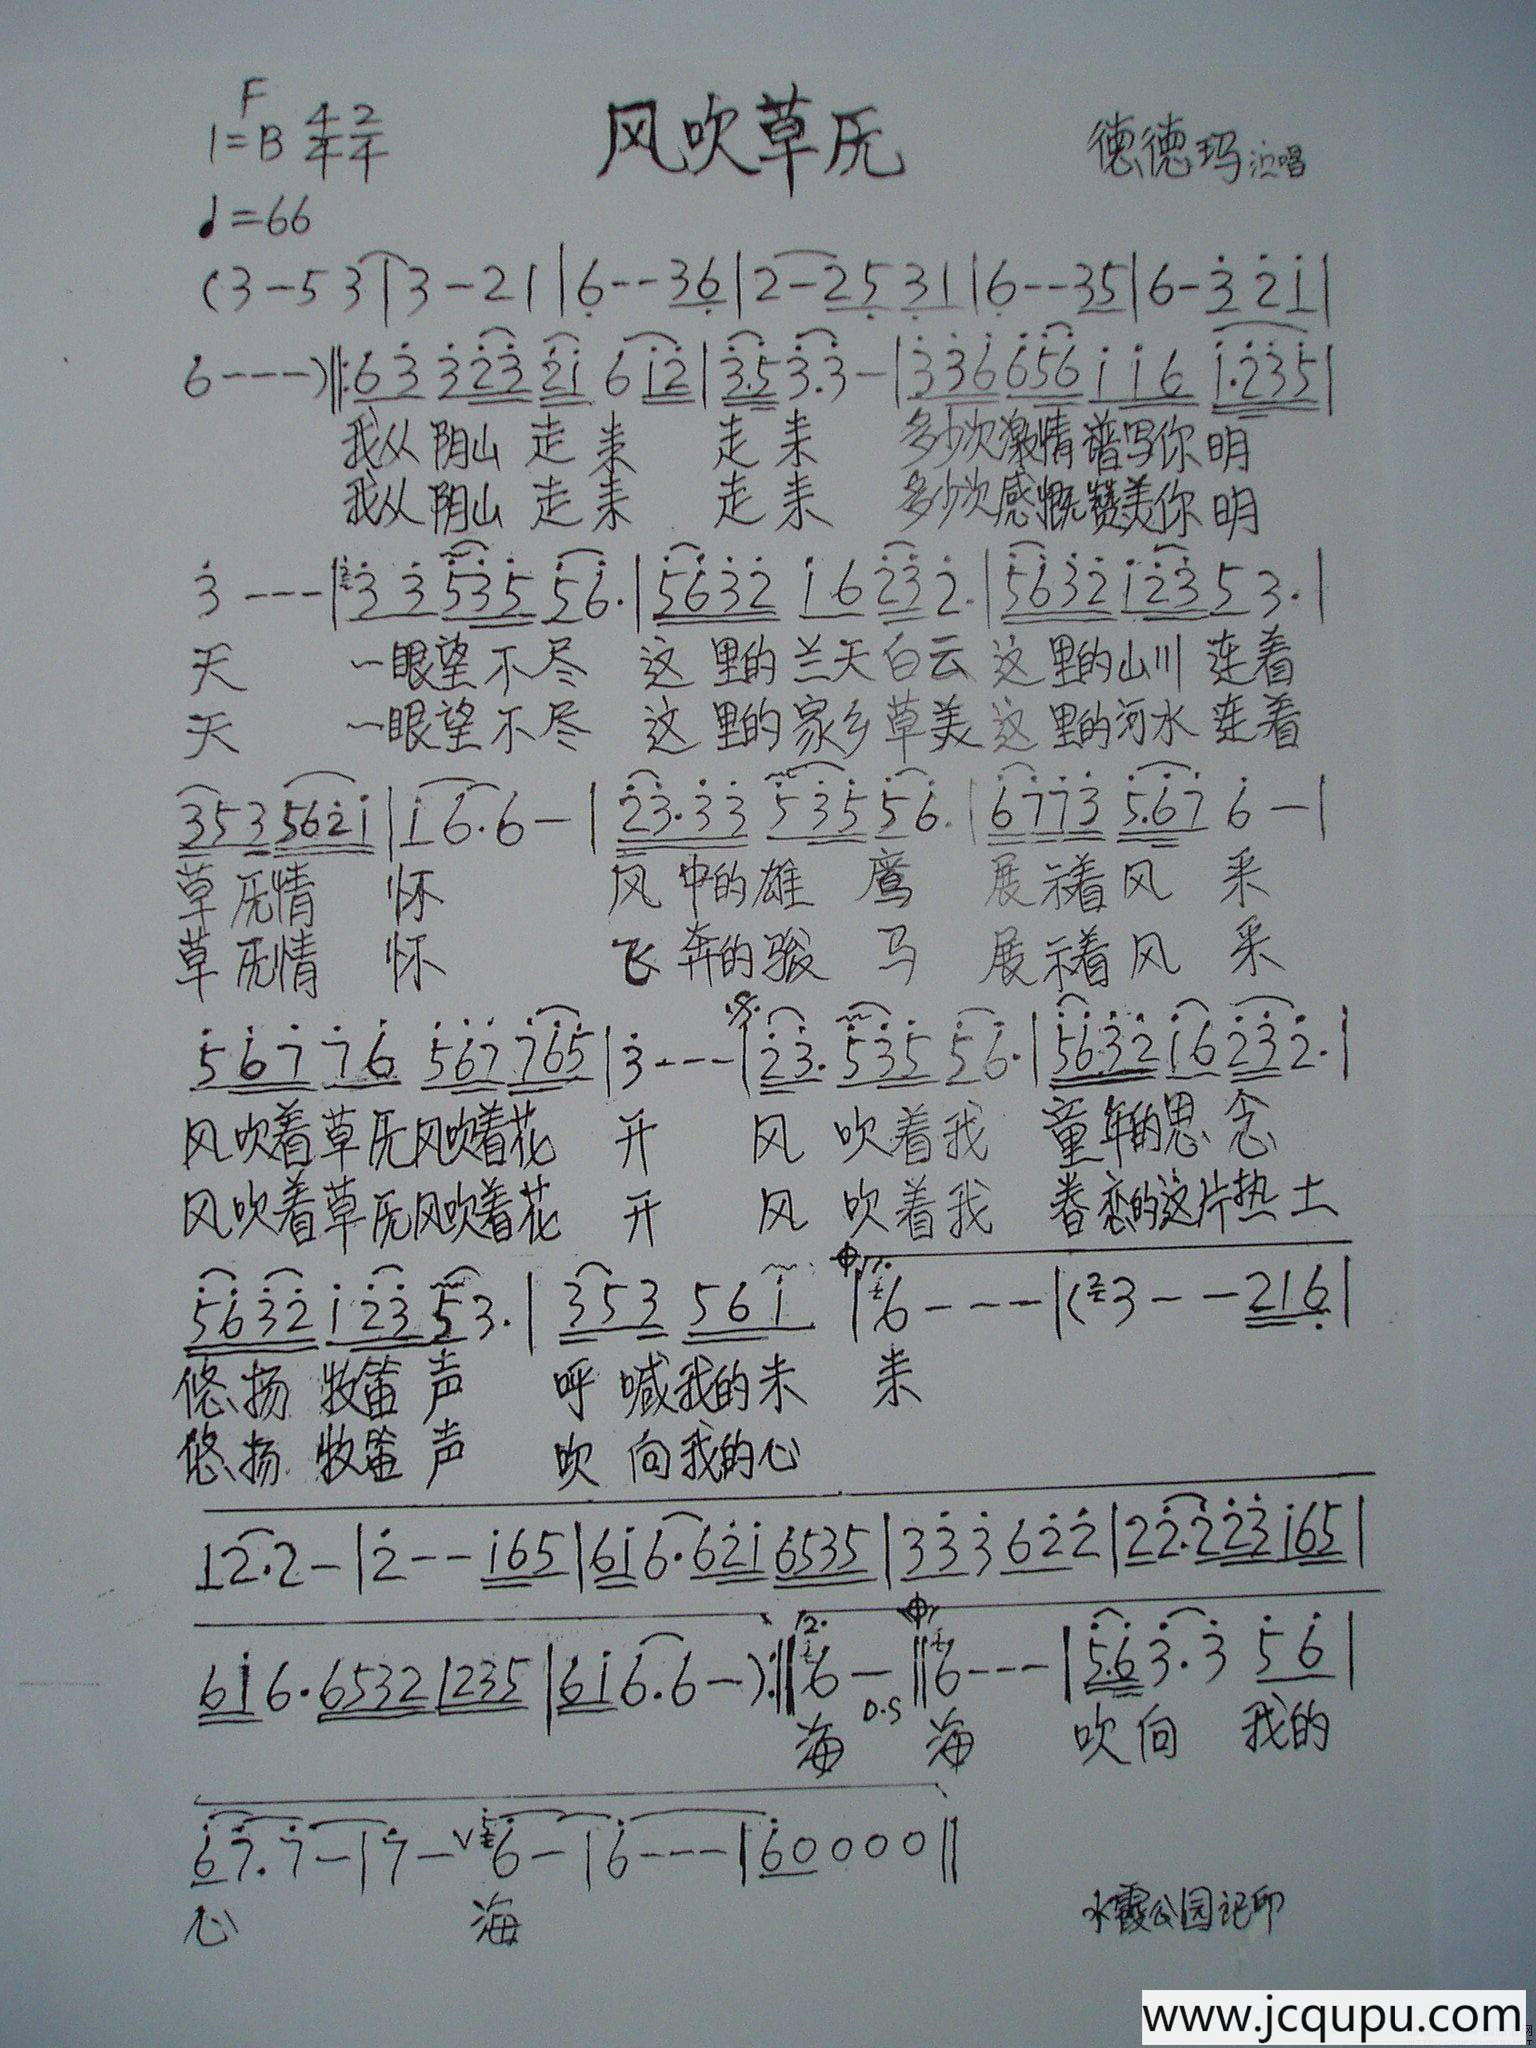 F
1=B 4/4 2/4
风吹草原
德德玛演唱
♩=66
(3-53|3-21|6--36|2-25 31|6--35|6-3 2 1|
6---)‖:63 323 21 612|3.53.3-|336 656 116 1.235|
我从阴山走来 走来 多少次激情谱写你明
我从阴山走来 走来 多少次感慨赞美你明
3---|3 3 535 56.|5632 16 232.|5632 123 53.|
天 一眼望不尽 这里的兰天白云 这里的山川连着
天 一眼望不尽 这里的家乡草美 这里的河水连着
353 5621|16.6-|23.33 535 56.|6773 5.67 6-|
草原情怀 风中的雄鹰 展示着风采
草原情怀 飞奔的骏马 展示着风采
567 76 567 765|3---|23. 535 56.|5632 16 232.|
风吹着草原风吹着花开 风吹着我 童年的思念
风吹着草原风吹着花开 风吹着我 眷恋的这片热土
5632 123 53.|353 561|6---|(3--216|
悠扬牧笛声 呼喊我的未来
悠扬牧笛声 吹向我的心
12.2-|2--165|616.621 6535|333 622|22.223165|
616.6532 1235|616.6-):‖2.6-‖6---|5.63.3 56|
D.S
海 海 吹向 我的
67.7-|7-V6-|6---|60000‖
心 海
水霞公园记印
www.jcqupu.com